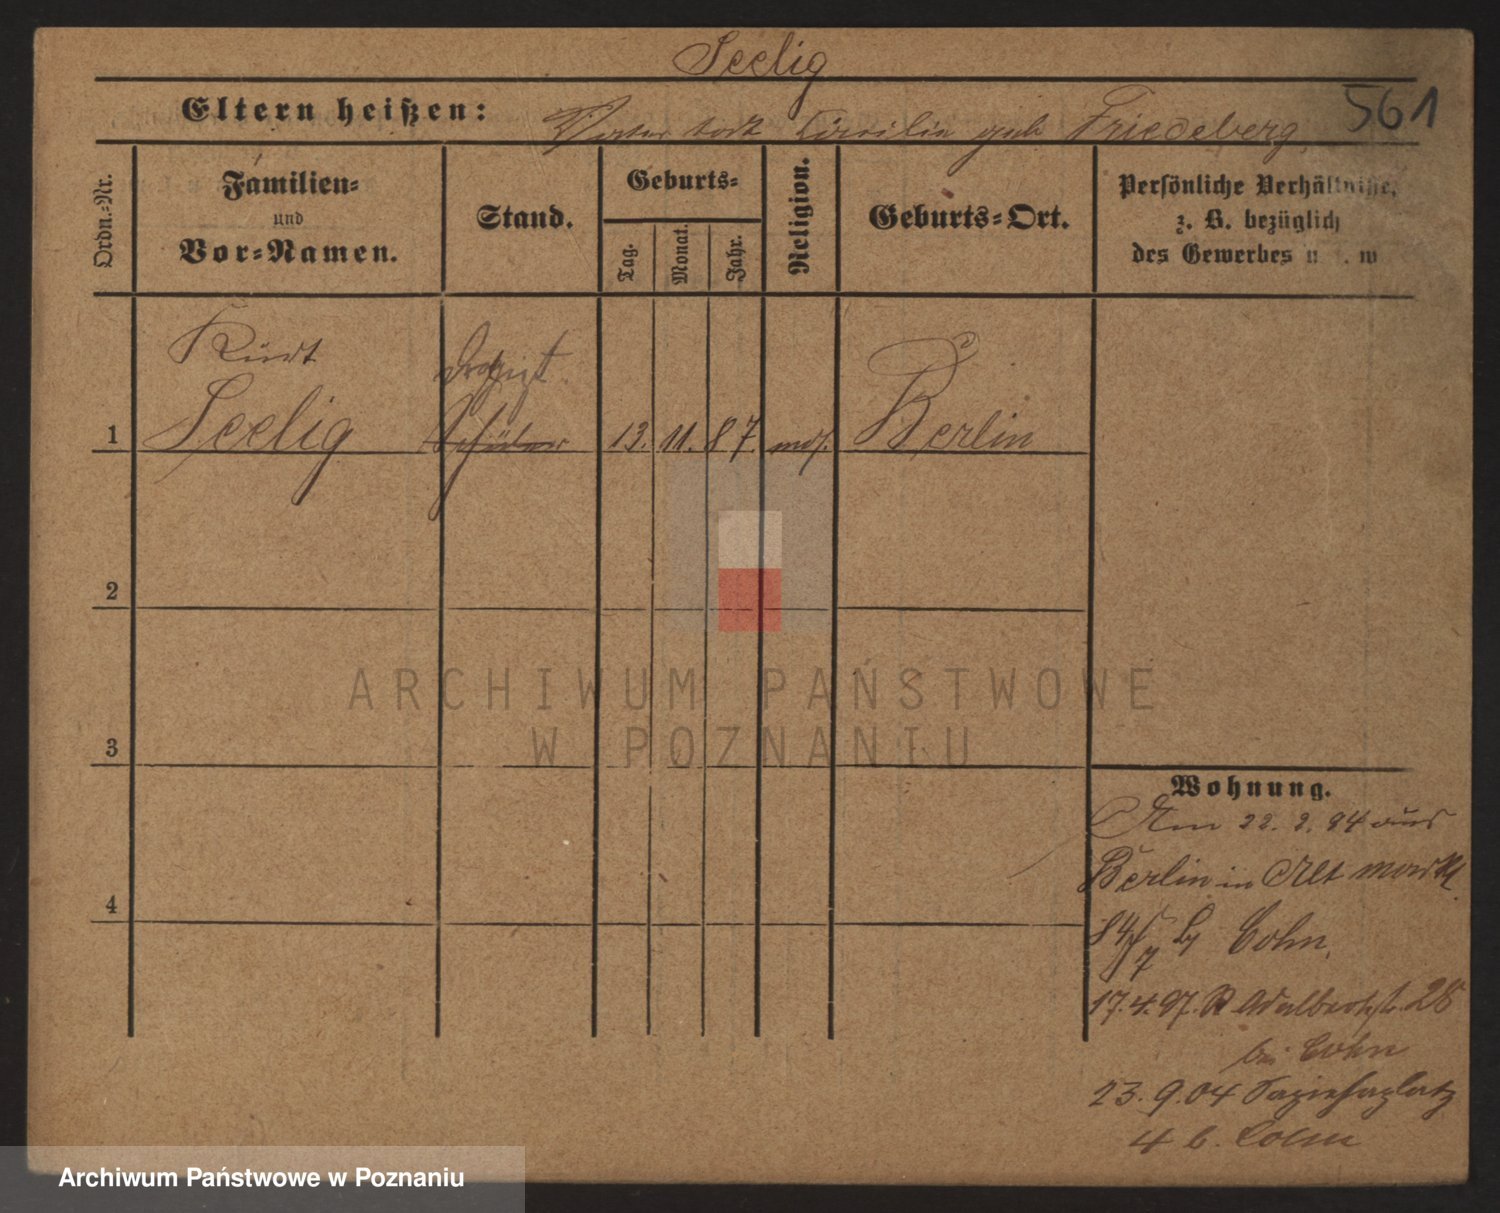 Seelig
Eltern heißen: Vater todt Cäcilie geb Friedeberg
561
Ordn.-Nr.
Familien- und Vor-Namen.
Stand.
Geburts-
Tag.
Monat.
Jahr.
Religion.
Geburts-Ort.
Persönliche Verhältnisse,
z. B. bezüglich
des Gewerbes u. s. w
Kurt
Seelig
Drogist
Schüler
1
13. 11. 87. mos. Berlin
2
3
4
Wohnung.
Am 22. 2. 94 aus
Berlin in Alt Markt
84 Cohn.
17.4.97. Adalbertstr. 28
bei Cohn
23.9.04 Sapiehaplatz
4 b. Cohn
ARCHIWUM PAŃSTWOWE
W POZNANIU
Archiwum Państwowe w Poznaniu